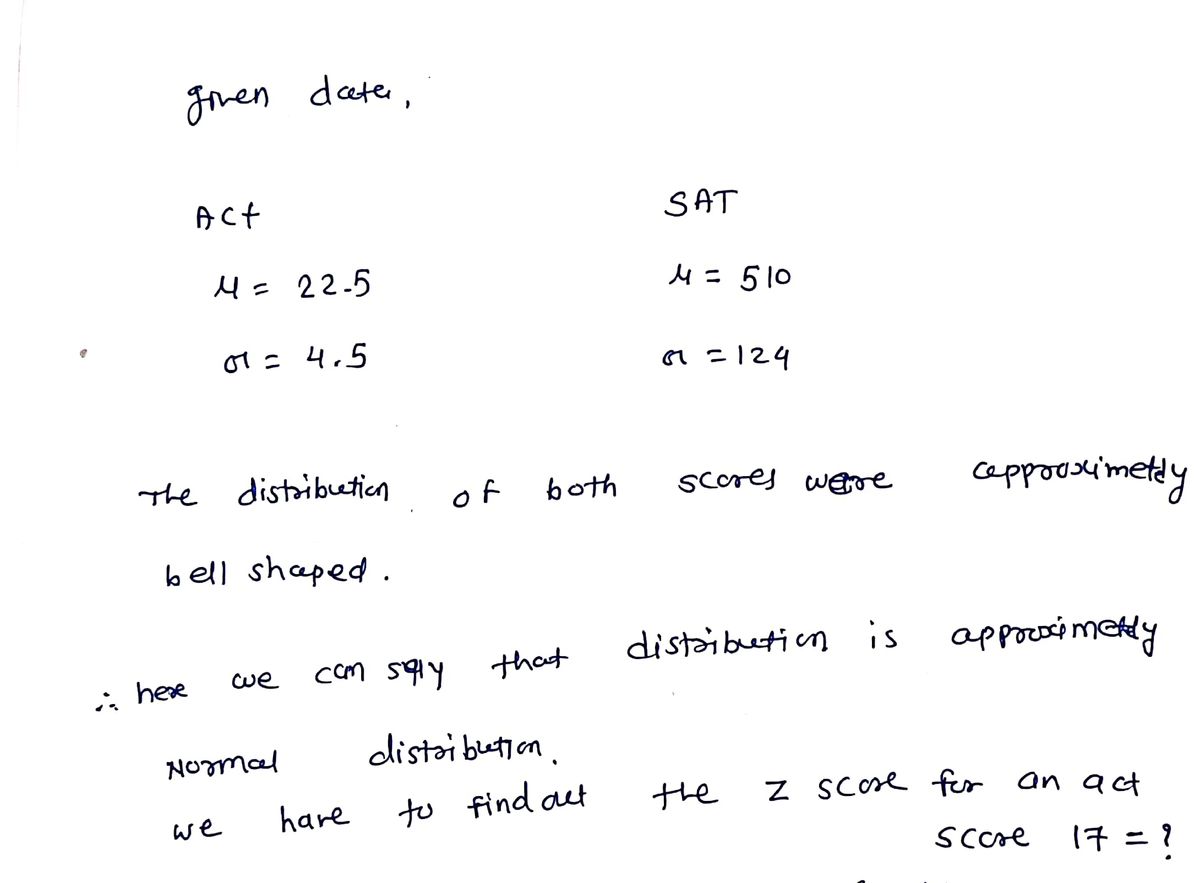 given data,
ACt SAT
μ = 22.5 μ = 510
σ = 4.5 σ = 124
The distribution of both scores were approximetly
bell shaped.
∴ here we can say that distribution is approximetly
Normal distribution.
we have to find out the z score for an act
score 17 = ?